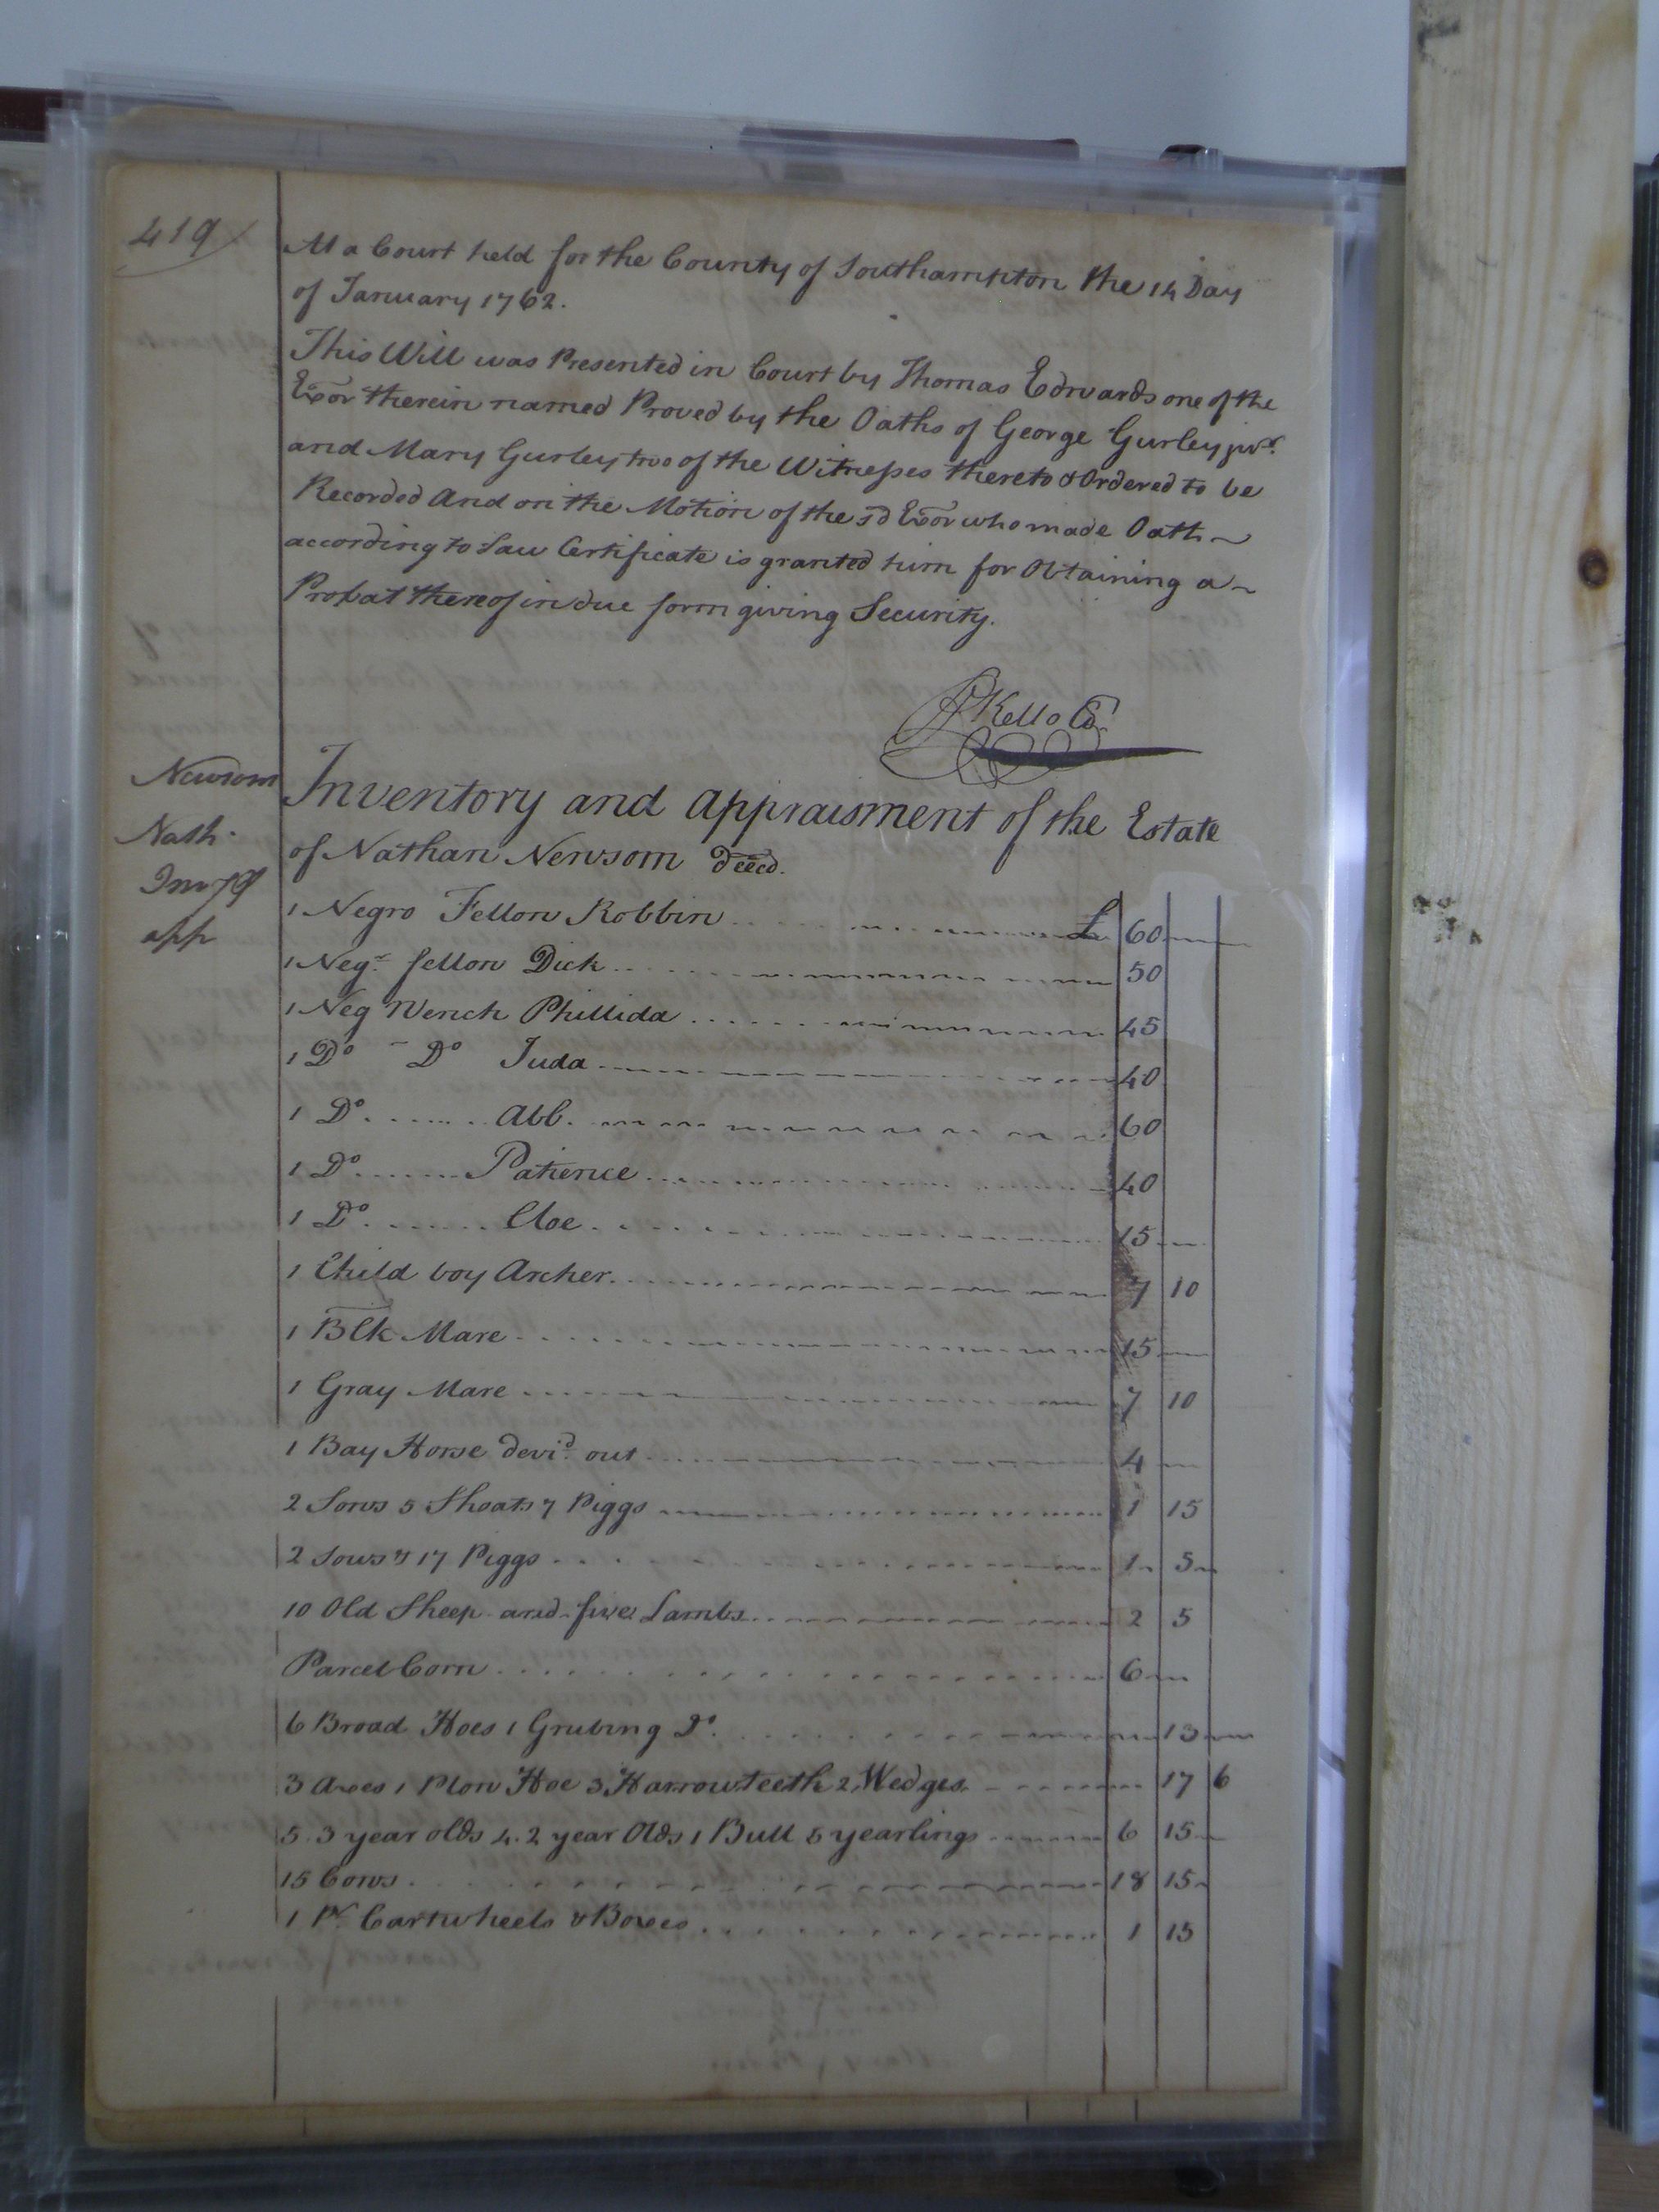 419
At a Court held for the County of Southampton the 14 Day
of January 1762.
This Will was Presented in Court by Thomas Edwards one of the
Exor therein named Proved by the Oaths of George Gurley junr.
and Mary Gurley two of the Witnesses thereto & Ordered to be
Recorded And on the Motion of the sd Exor who made Oath
according to Law Certificate is granted him for Obtaining a
Probat thereof in due form giving Security.
Kello
Newsom
Nath.
app
Inventory and Appraisment of the Estate
of Nathan Newsom Decd.
1 Negro Fellow Robbin £ 60
1 Negr. fellow Dick 50
1 Neg Wench Phillida 45
1 Do - Do Juda 40
1 Do. Abb. 60
1 Do. Patience 40
1 Do. Cloe 15
1 Child boy Archer 7 10
1 Blk Mare 15
1 Gray Mare 7 10
1 Bay Horse devid. out 4
2 Sows 5 Shoats 7 Piggs 1 15
2 Sows & 17 Piggs 1 5
10 Old Sheep and five Lambs 2 5
Parcel Corn 6
6 Broad Hoes 1 Grubing Do. 13
3 Axes 1 Plow Hoe 3 Harrow teeth 2 Wedges 17 6
5. 3 year olds 4. 2 year Olds 1 Bull 5 yearlings 6 15
15 Cows 18 15
1 Pr. Cartwheels & Boxes 1 15